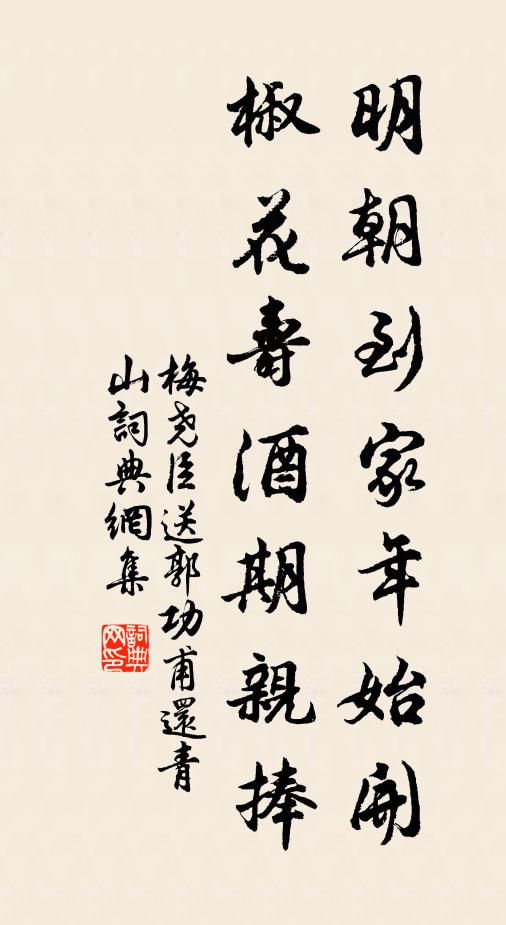 明朝到家年始開
椒花壽酒期親捧
梅尧臣送郭功甫還青
山詞典網集
詞典
网印